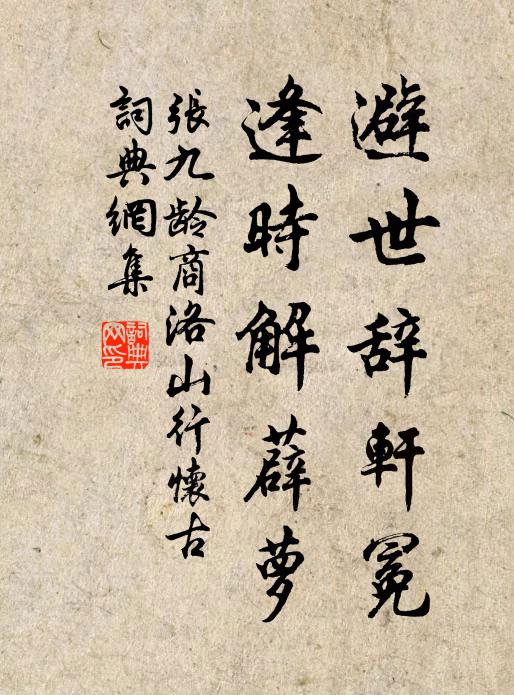 避世辞軒冕
逢時解薜萝
張九龄商洛山行懷古
詞典網集
詞典網印